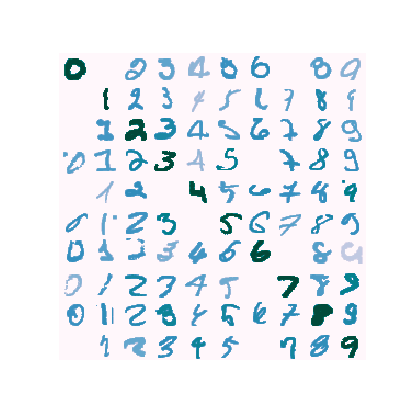 0 2 3 4 0 6 8 9
1 2 3 4 5 6 7 8 9
1 2 3 4 5 6 7 8 9
0 1 2 3 4 5 7 8 9
1 2 4 5 6 7 8 9
0 1 2 3 5 6 7 8 9
0 1 2 3 4 6 6 8 9
0 1 2 3 4 5 7 8 9
0 1 2 8 4 5 6 7 8 9
1 2 3 4 5 7 8 9